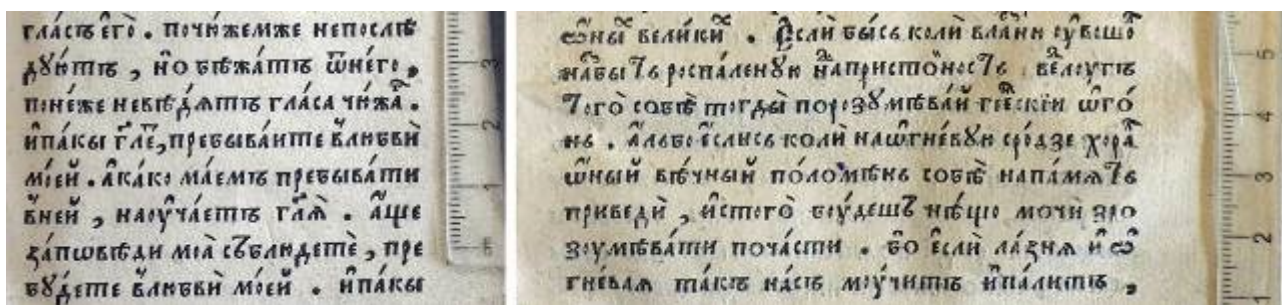 гла́съ єго̀ . почѹ́жемже непослѣ
дꙋ́ютъ , но бѣжа́тъ ѿне́го ,
поне́же невѣ́дѧтъ гла́са чюжа́ .
и҆па́кы гл҃е , пребыва́ите влюбвѝ
мое́й . а҆ка́ко ма́емъ пребыва́ти
вне́й , наоуча́етъ гл҃ѧ . а҆́ще
за́пѡвѣди моѧ̀ съблюдетѐ , пре
бꙋ́дете влюбвѝ мое́й . и҆па́кы
великїй . Если бы́сь колѝ
роспале́нꙋю
того̀ собѣ̀ тогды̀ порозꙋмѣва́й ѡ҆го́
нь . а҆́льбо е҆́слись колѝ нашгне́вꙋю сро́дзе
вѣ́чный по́ломѣнь собѣ̀ напа́мѧть
приведѝ , и҆стого̀ боу́дешъ нѣ́що мо́чи зро
зоумѣва́ти поча́сти . бо е҆слѝ ла́знѧ и҆ ѡ҆
гнева́ѧ та́къ на́съ моу́читъ и҆па́литъ ,
1 2 3
1 2 3 4 5